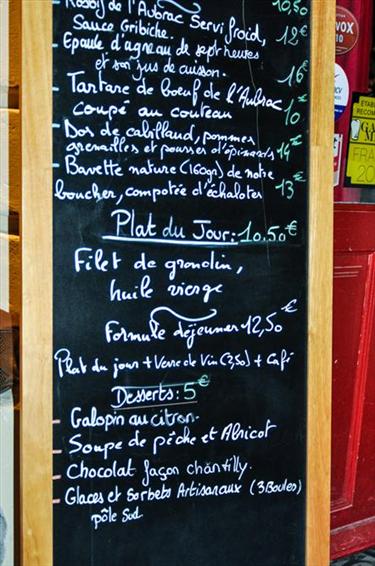 Rosbif de l'Aubrac Servi froid, 10,50
Sauce Gribiche. 12€
Epaule d'agneau de sept heures
et son jus de cuisson. 16€
Tartare de boeuf de l'Aubrac
coupé au couteau 10€
Dos de cabillaud, pommes
grenailles et pousses d'épinards 14€
Bavette nature (160gr) de notre
boucher, compotée d'échalotes 13€
Plat du Jour: 10.50€
Filet de grondin,
huile vierge
Formule déjeuner 12,50€
Plat du jour + Verre de Vin (3,50) + Café
Desserts: 5€
Galopin au citron.
Soupe de pêche et Abricot
Chocolat façon chantilly.
Glaces et Sorbets Artisanaux (3 Boules)
pôle Sud
VOX
10
ETAB
RECOM
FRA
20